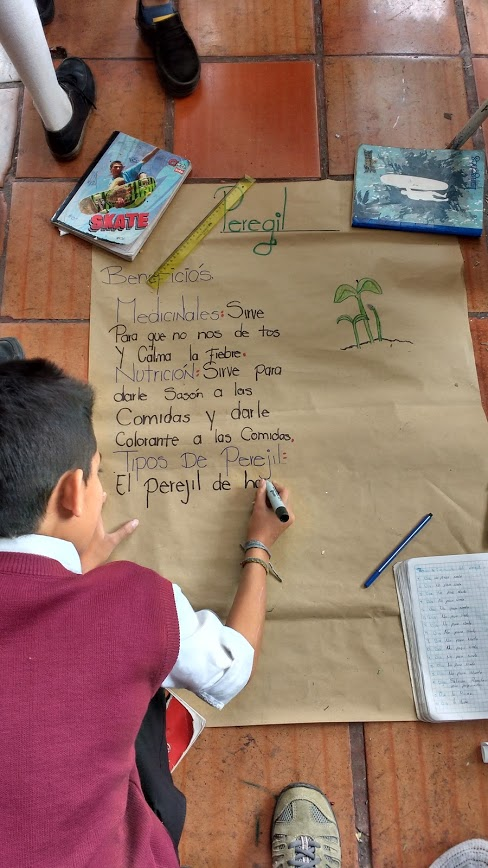 Peregil
SKATE
Beneficios.
Medicinales: Sirve
Para que no nos de tos
y Calma la Fiebre.
Nutrición: Sirve para
darle Sasón a las
Comidas y darle
Colorante a las Comidas.
Tipos De Perejil:
El perejil de ho